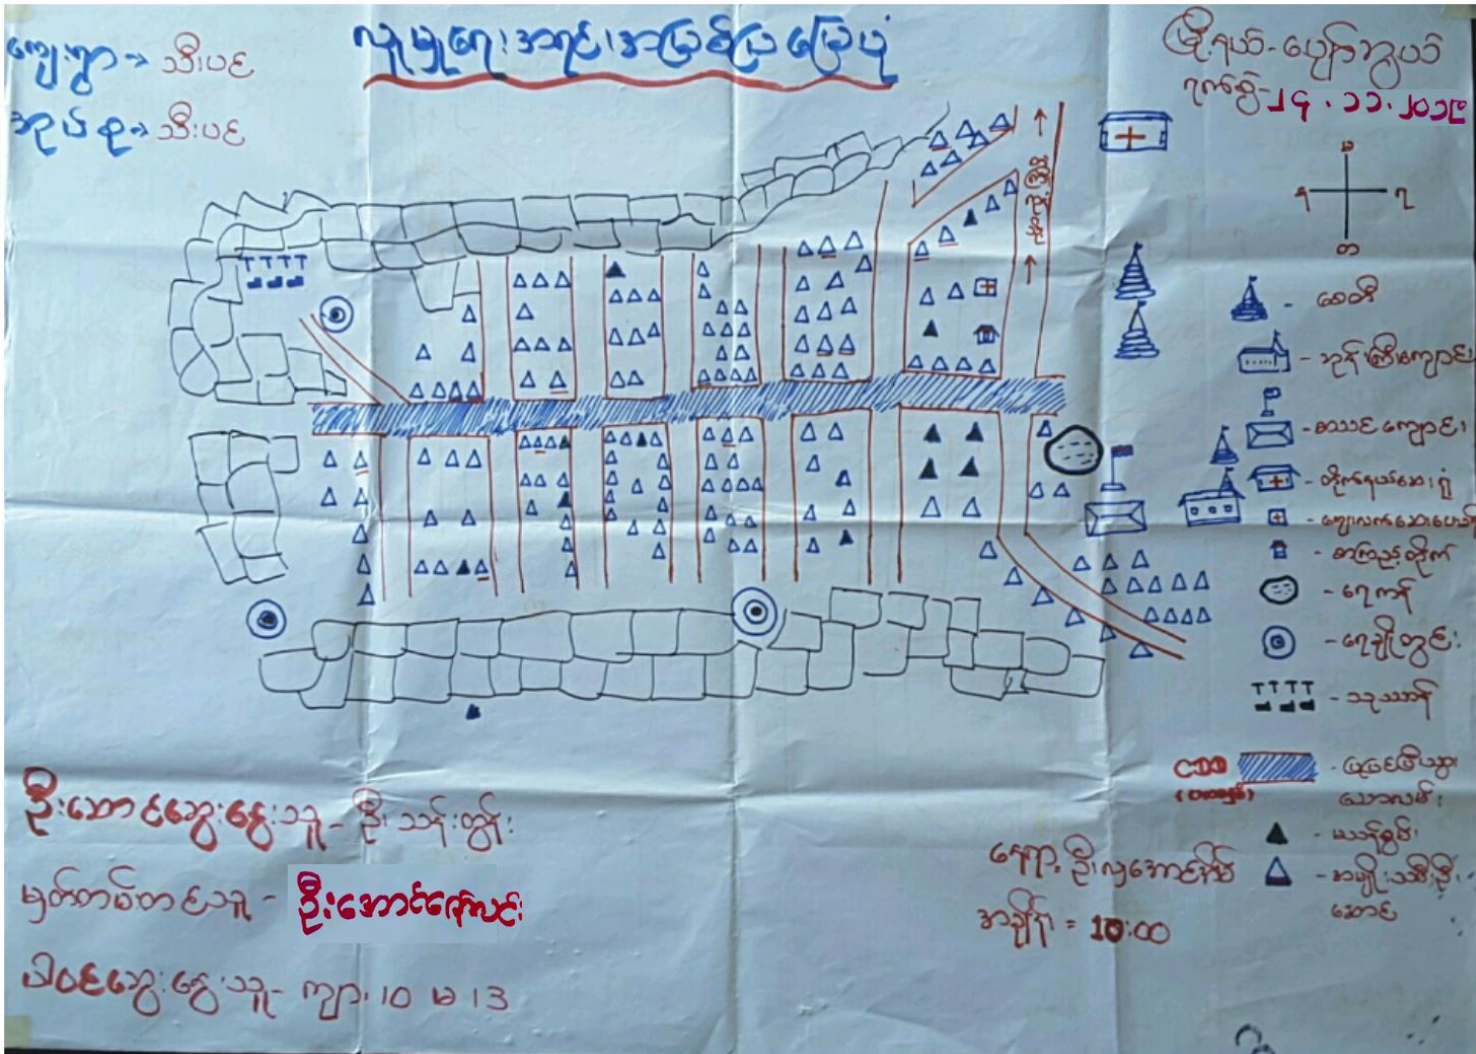 ကျေးရွာ → သီးပင်
အုပ်စု → သီးပင်
လူမှုရေးအရင်းအမြစ်ပြမြေပုံ
မြို့နယ် - ပျော်ဘွယ်
ရက်စွဲ - ၂၄.၁၁.၂၀၁၉
မ
တ
- စေတီ
- ဘုန်းကြီးကျောင်း
- စာသင်ကျောင်း
- တိုက်နယ်ဆေးရုံ
- ကျေးလက်ဆေးပေး
- စာကြည့်တိုက်
- ရေကန်
- ရေချိုတွင်း
- သုသာန်
CDD
- ပြုပြင်ပြီးသွား
သောလမ်း
- မသန်စွမ်း
- အမျိုးသမီးဦး
ဆောင်
ဦးဆောင်ဆွေးနွေးသူ - ဦးသန်းထွန်း
မှတ်တမ်းတင်သူ - ဦးအောင်ဇော်လင်း
ပါဝင်ဆွေးနွေးသူ - ကျား ၊ 10 မ ၊ 13
နေရာ - ဦးလှအောင်အိမ်
အချိန် = 10:00